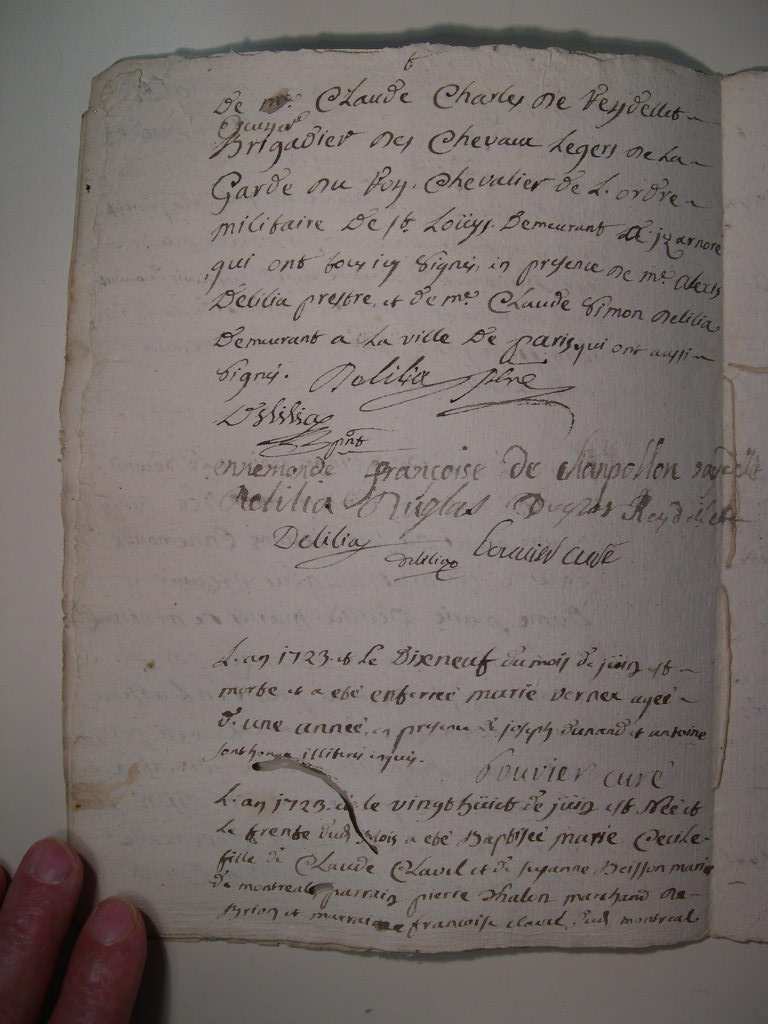 De mr. Claude Charles de Reydellet
Ecuyer
Brigadier des Chevaux Legers de La
Garde du Roy. Chevalier de L. ordre
militaire De st. Loüys. Demeurant a jzernore
qui ont tous icy signés, in presence de mr. Alexis
Delilia prestre, et de mr. Claude Simon Delilia
Demeurant a La ville De paris qui ont aussi
signés. Delilia
Delilia
ennemonde françoise de Chanpollon reydellet
Delilia Duglas Duglas Reydellet
Delilia Delilia bouvier curé
L. an 1723 et le Dixneuf du mois de juin est
morte et a eté enterreé marie vernex ageé
d'une anneé, en presence de joseph dunand et antoine
illiteres enquis.
bouvier curé
L. an 1723 et le vingt hüict de juin est Neé et
Le trente dud. Mois a eté Baptiseé marie Cecile
fille de Claude Clavel et de suzanne Boisson marié
de montreal parrain pierre chalon marchand de
Brion et marraine françoise claval, dud. montreal